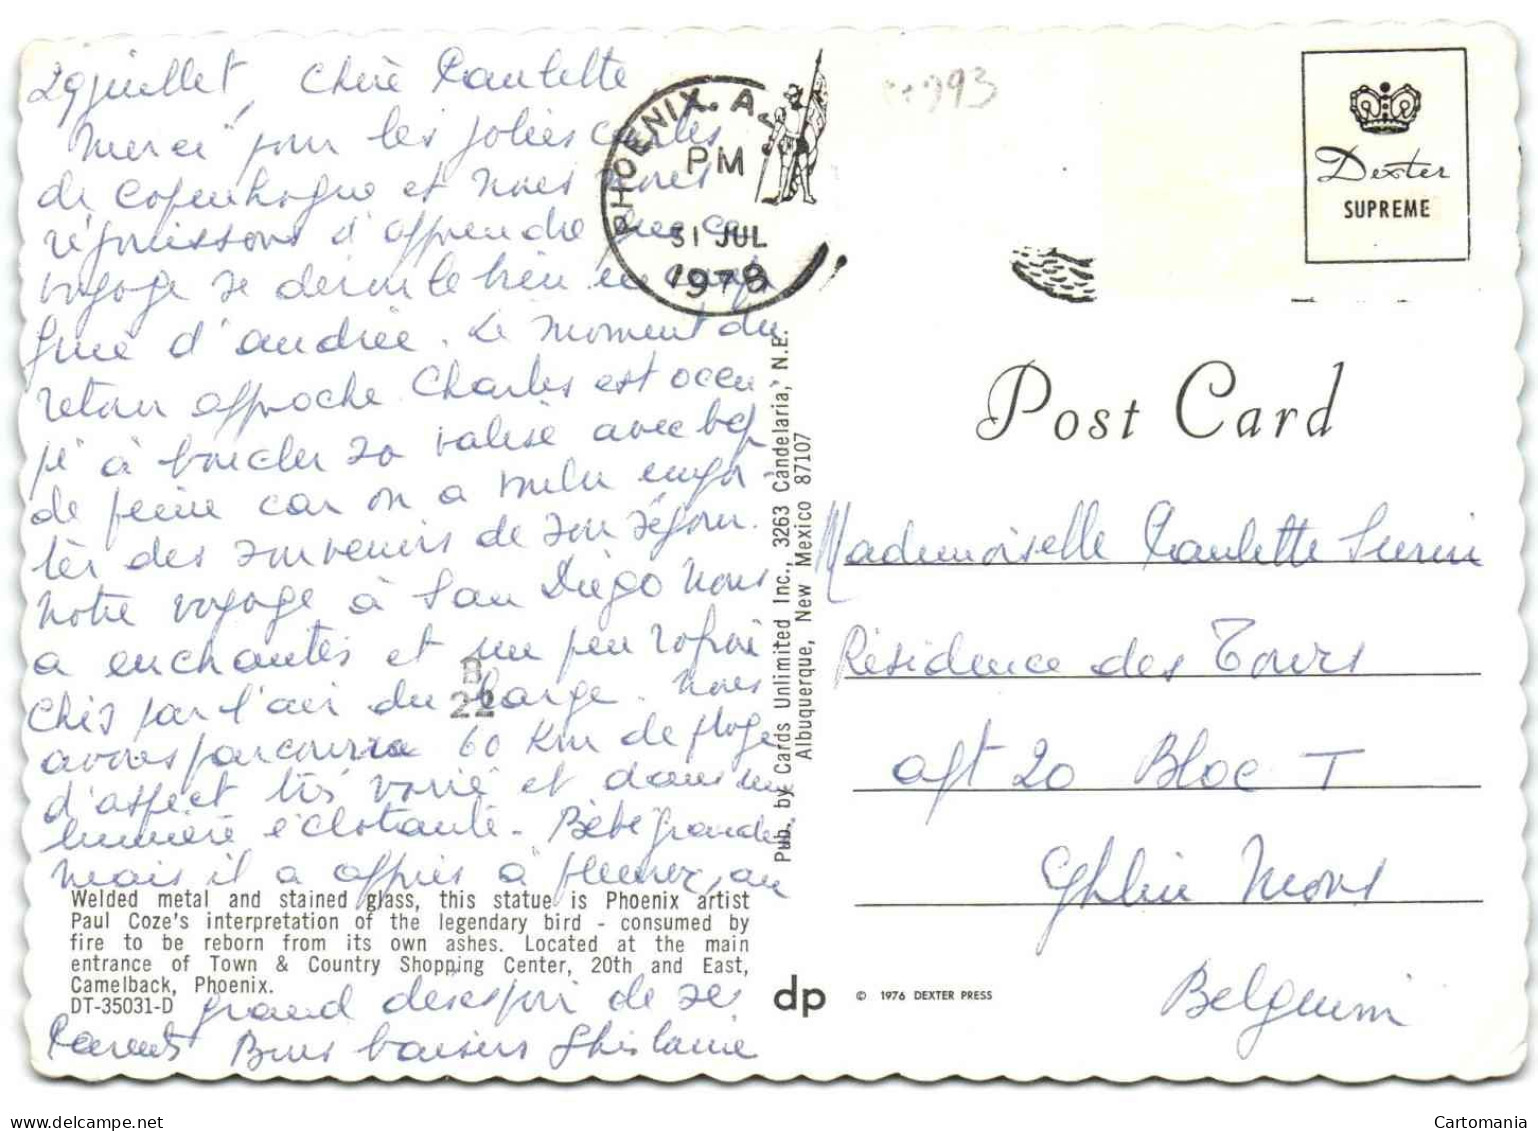 29 juillet, Chère Paulette
Merci pour les jolies cartes
de Copenhague et nous nous
réjouissons d'apprendre que ce
voyage se déroule bien en
d'andrée. Le moment du
retour approche Charles est occu
pé à boucler sa valise avec bcp
de peine car on a voulu empor-
ter des souvenirs de son séjour.
Notre voyage à San Diégo nous
a enchantés et un peu rafraî
chis par l'air du large. Nous
avons parcouru 60 Km de plage
d'aspect très varié et dans une
lumière éclatante - Bébé grandit
mais il a appris à pleurer, au
Welded metal and stained glass, this statue is Phoenix artist
Paul Coze's interpretation of the legendary bird - consumed by
fire to be reborn from its own ashes. Located at the main
entrance of Town & Country Shopping Center, 20th and East,
Camelback, Phoenix.
DT-35031-D
grand désespoir de ses
Parents Bons baisers Ghislaine
B
22
PHOENIX, A
PM
31 JUL
1978
993
Dexter
SUPREME
Post Card
Pub. by Cards Unlimited Inc., 3263 Candelaria, N.E.
Albuquerque, New Mexico 87107
Mademoiselle Paulette
Résidence des Tours
apt 20 Bloc T
Ghlin Mons
Belgium
dp © 1976 DEXTER PRESS
Cartomania